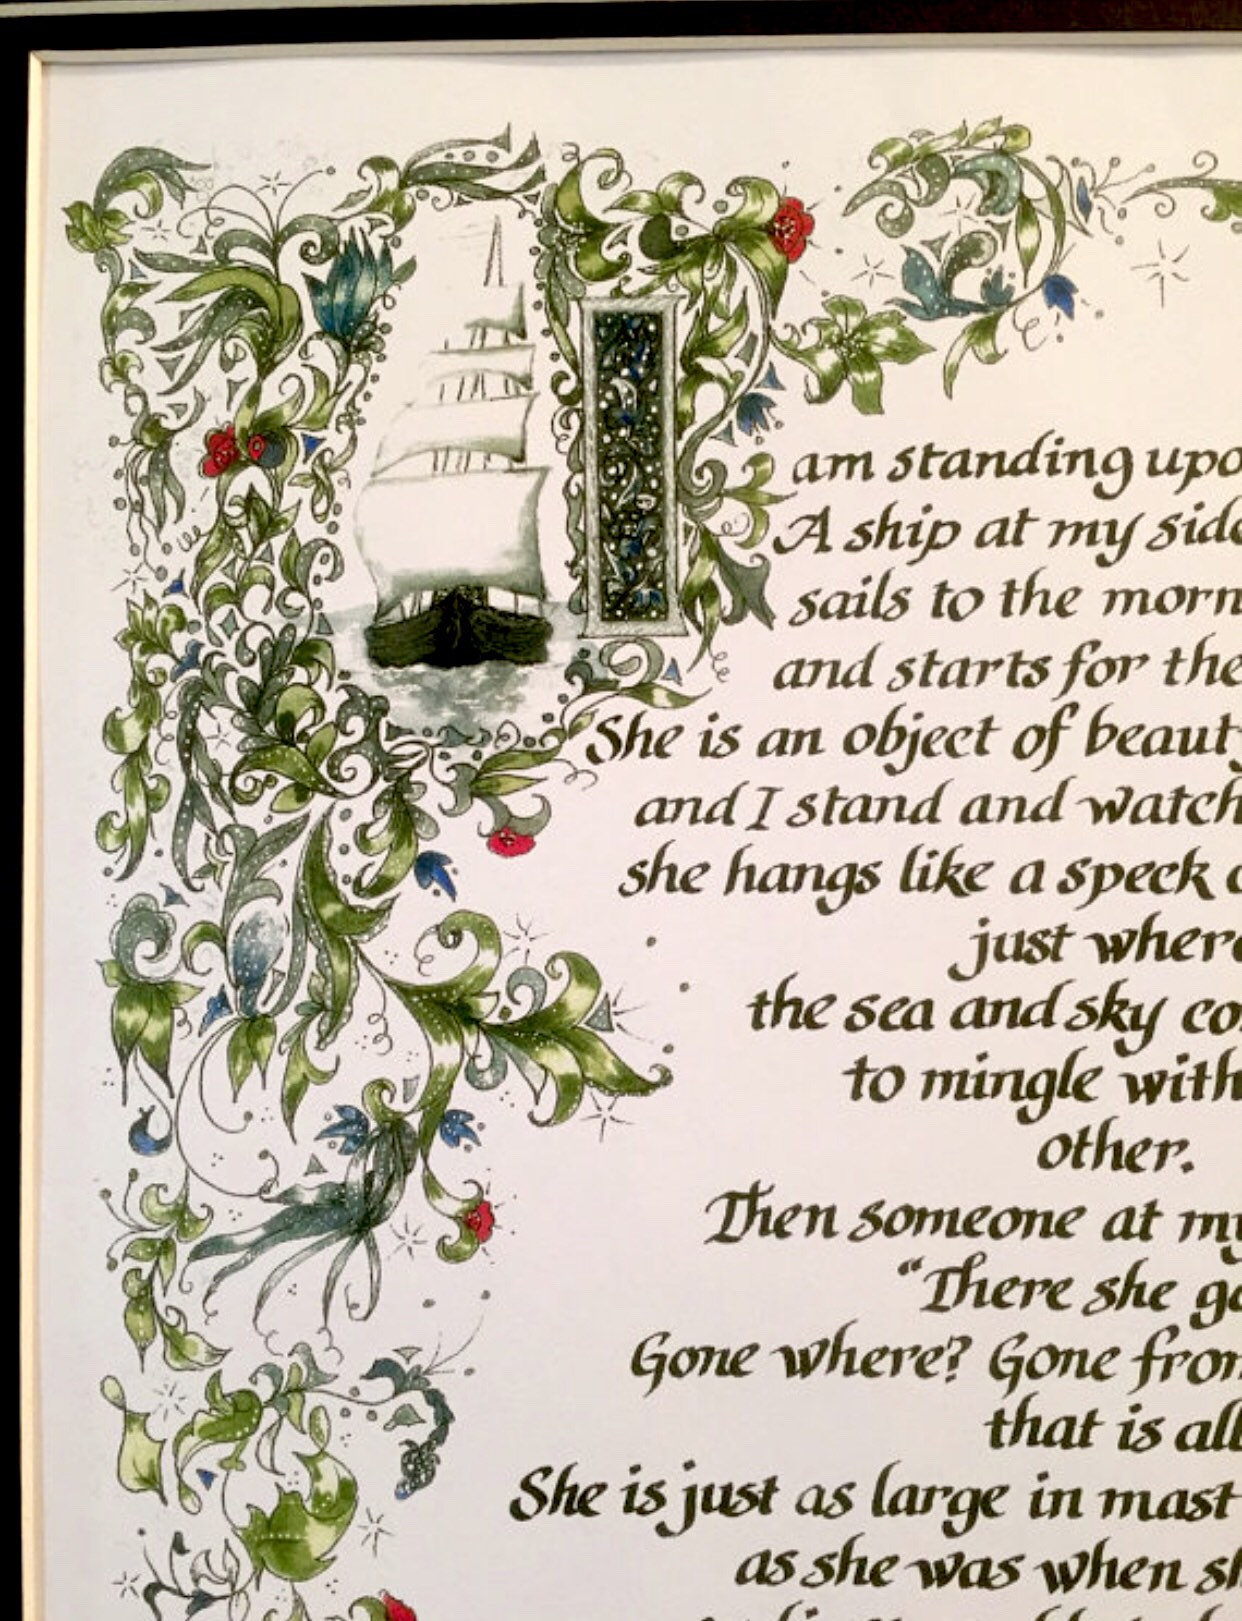 I am standing upo
A ship at my side
sails to the morn
and starts for the
She is an object of beaut
and I stand and watch
she hangs like a speck
just where
the sea and sky co
to mingle with
other.
Then someone at my
“There she go
Gone where? Gone from
that is all
She is just as large in mast
as she was when sh